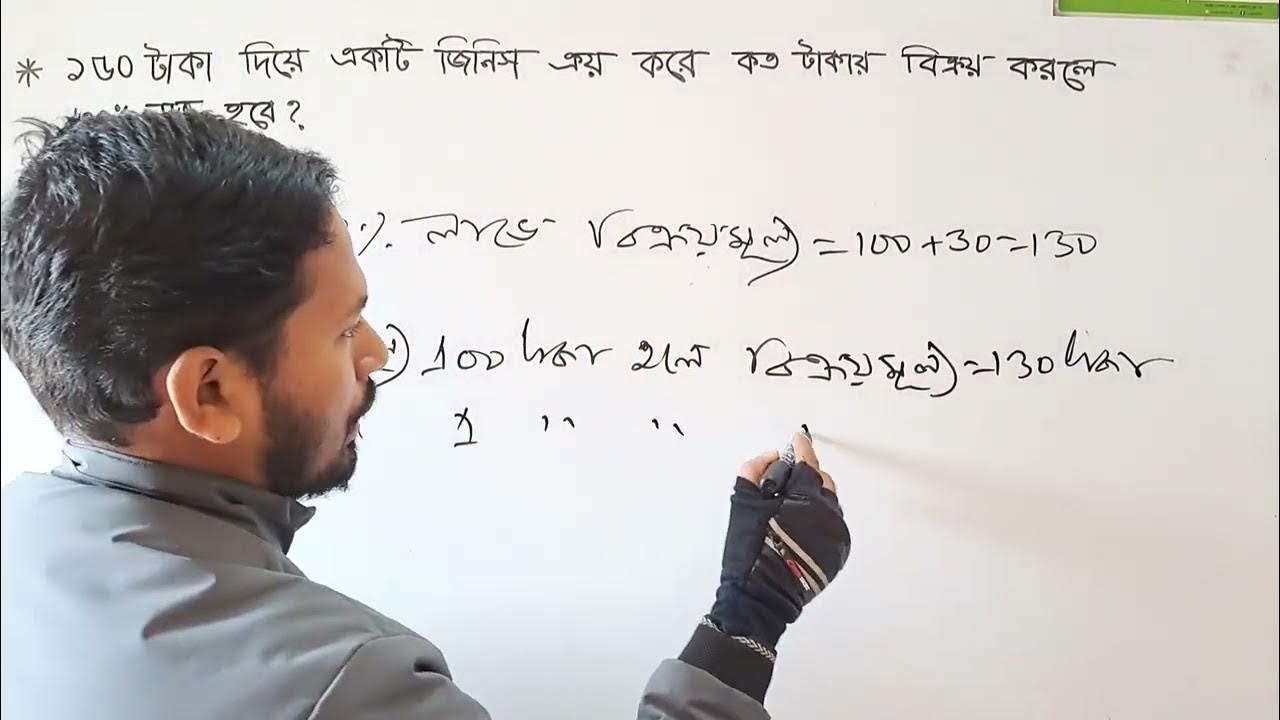 * ১৬০ টাকা দিয়ে একটি জিনিস ক্রয় করে কত টাকায় বিক্রয় করলে
হবে?
% লাভে বিক্রয়মূল্য = 100 + 30 = 130
100 টাকা হলে বিক্রয়মূল্য = 130 টাকা
1 " "